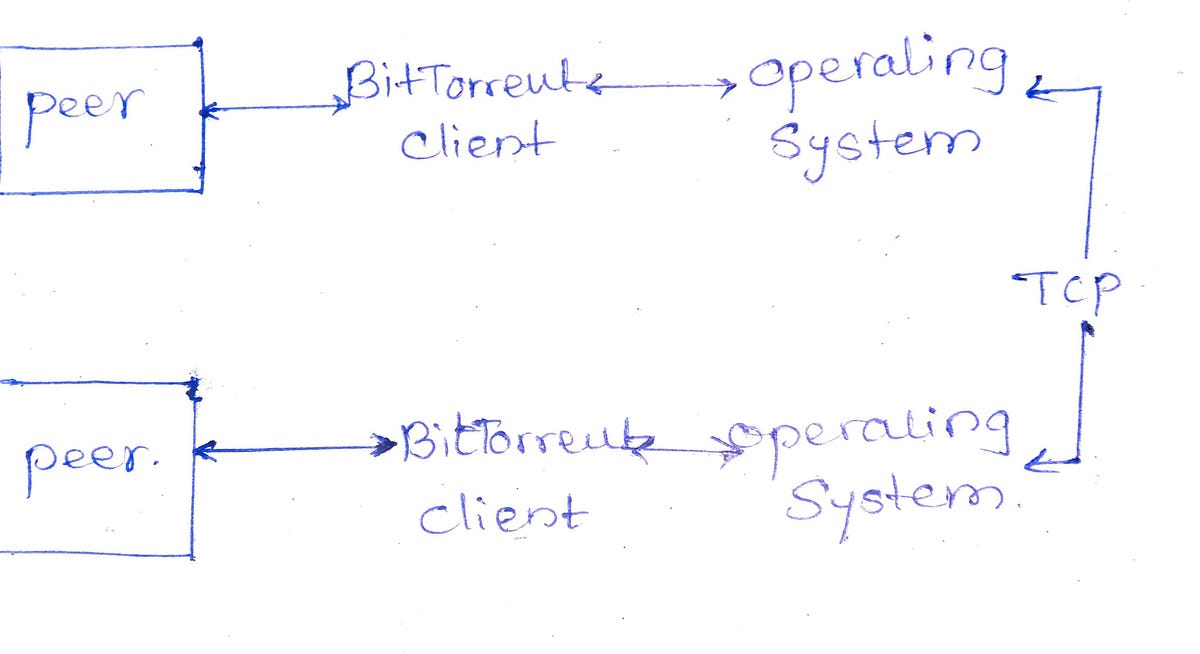 peer
BitTorrent
client
operating
system
TCP
peer.
BitTorrent
client
operating
system.